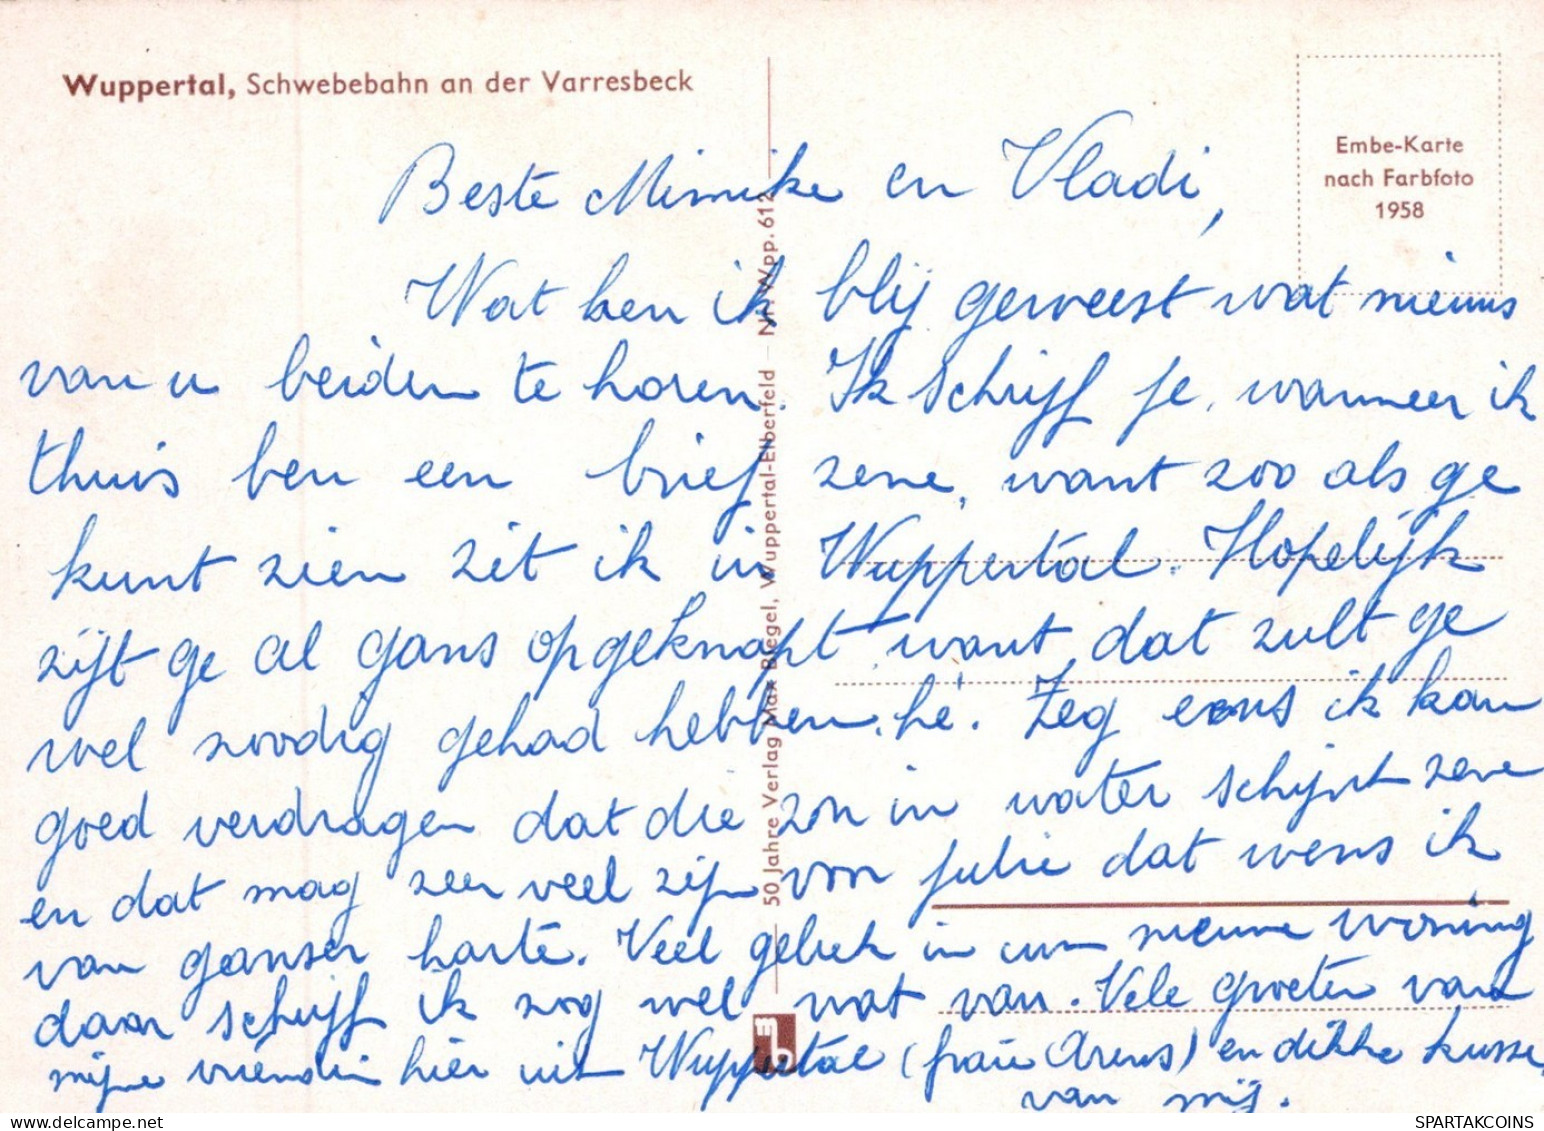 Wuppertal, Schwebebahn an der Varresbeck
Embe-Karte
nach Farbfoto
1958
Beste Mimike en Vladi,
Wat ben ik blij geweest wat nieuws
van u beiden te horen. Ik schrijf je, wanneer ik
thuis ben een brief zene, want zoo als ge
kunt zien zit ik in Wuppertal. Hopelijk
zijt ge al gans opgeknapt want, dat zult ge
wel noodig gehad hebben, hé. Zeg eens ik kan
goed verdragen dat die zon in water schijnt zene
en dat mag zeer veel zijn voor julie dat wens ik
van ganser harte. Veel geluk in uw nieuwe woning
daar schrijf ik nog wel wat van. Vele groeten van
mijne vriendin hier uit Wuppertal (frau Arens) en dikke kusse
van mij.
50 Jahre Verlag Max Biegel, Wuppertal-Elberfeld — NRWpp. 612
SPARTAKCOINS